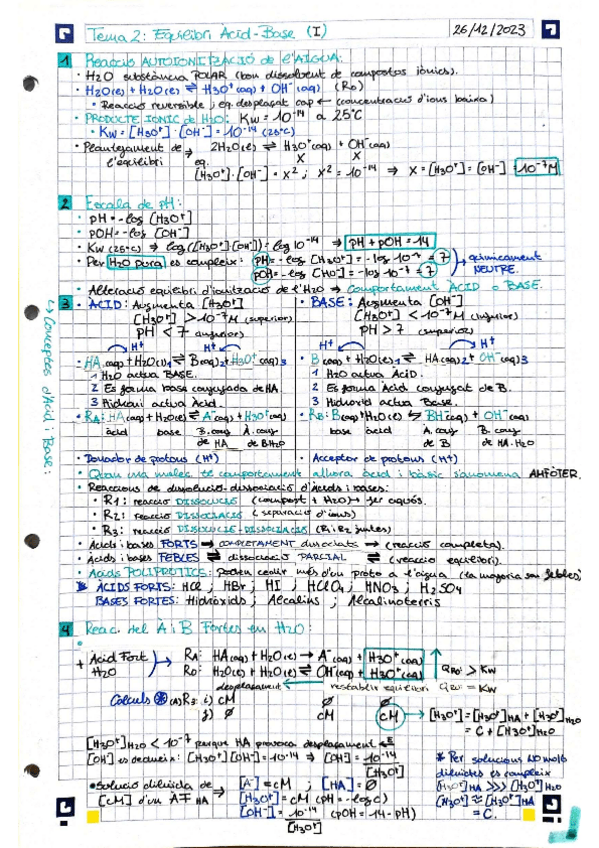 Tema 2: Equilibri Àcid-Base (I) 26/12/2023
1 Reacció AUTOIONITZACIÓ de l'AIGUA:
· H2O substància POLAR (bon dissolvent de compostos iònics).
· H2O(l) + H2O(l) ⇌ H3O+(aq) + OH-(aq) (R0)
• Reacció reversible; eq. desplaçat cap ← (concentració d'ions baixa)
· PRODUCTE IÒNIC de H2O: Kw = 10^-14 a 25°C
• Kw = [H3O+]·[OH-] = 10^-14 (25°C)
· Plantejament de l'equilibri → 2H2O(l) ⇌ H3O+(aq) + OH-(aq)
eq. X X
[H3O+]·[OH-] = x²; x² = 10^-14 ⇒ x = [H3O+] = [OH-] = 10^-7 M
2 Escala de pH:
· pH = -log [H3O+]
· pOH = -log [OH-]
· Kw (25°C) ⇒ log([H3O+]·[OH-]) = log 10^-14 ⇒ pH + pOH = 14
· Per H2O pura es compleix: pH = -log [H3O+] = -log 10^-7 = 7
pOH = -log [HO-] = -log 10^-7 = 7
químicament NEUTRE.
· Alteració equilibri d'ionització de l'H2O → Comportament ÀCID o BASE.
↳ Conceptes d'Àcid i Base:
3 · ÀCID: Augmenta [H3O+]
[H3O+] > 10^-7 M (superior)
pH < 7
H+ H+
· HA(aq) + H2O(l)1 ⇌ B(aq)2 + H3O+(aq)3
1 H2O actua BASE.
2 Es forma base conjugada de HA.
3 Hidroni actua Àcid.
· RA: HA(aq) + H2O(l) ⇌ A-(aq) + H3O+(aq)
àcid base B. conj de HA A. conj de H2O
· Donador de protons (H+)
· BASE: Augmenta [OH-]
[H3O+] < 10^-7 M (inferior)
pH > 7 (superior)
H+ H+
· B(aq) + H2O(l)1 ⇌ HA(aq)2 + OH-(aq)3
1 H2O actua ÀCID.
2 Es forma Àcid conjugat de B.
3 Hidroxid actua Base.
· RB: B(aq) + H2O(l) ⇆ BH+(aq) + OH-(aq)
base àcid A. conj de B B. conj de HA·H2O
· Acceptor de protons (H+)
· Quan una molèc. té comportament alhora àcid i bàsic s'anomena AMFÒTER.
· Reaccions de dissolució-dissociació d'Àcids i bases:
• R1: reacció DISSOLUCIÓ (compost + H2O) → ser aquós.
• R2: reacció DISSOCIACIÓ (separació d'ions)
• R3: reacció DISSOLUCIÓ-DISSOCIACIÓ (R1 i R2 juntes)
· Àcids i bases FORTS ⇒ COMPLETAMENT dissociats → (reacció completa).
· Àcids i bases FEBLES ⇌ dissociació PARCIAL ⇌ (reacció equilibri).
· Àcids POLIPRÒTICS: poden cedir més d'un protó a l'aigua (la majoria són febles)
ÀCIDS FORTS: HCl; HBr; HI; HClO4; HNO3; H2SO4
BASES FORTES: Hidròxids; Alcalins; Alcalinoterris
4 Reac. del A i B Fortes en H2O:
+ Àcid Fort H2O
RA: HA(aq) + H2O(l) → A-(aq) + H3O+(aq)
R0: H2O(l) + H2O(l) ⇌ OH-(aq) + H3O+(aq)
desplaçament ← restablir equilibri
QR0 > Kw
QR0 = Kw
Càlculs (A) R3: i) cM Ø Ø
f) Ø cM cM → [H3O+] = [H3O+]HA + [H3O+]H2O
= C + [H3O+]H2O
[H3O+]H2O < 10^-7 perquè HA provoca desplaçament ←
[OH-] es dedueix: [H3O+][OH-] = 10^-14 ⇒ [OH-] = 10^-14 / [H3O+]
* Per solucions NO molt diluïdes es compleix
[H3O+]HA >>> [H3O+]H2O
[H3O+] ≈ [H3O+]HA = C.
• Solució diluïda de [cM] d'un AF HA →
[A-] = cM; [HA] = Ø
[H3O+] = cM (pH = -log c)
[OH-] = 10^-14 / [H3O+] (pOH = 14 - pH)